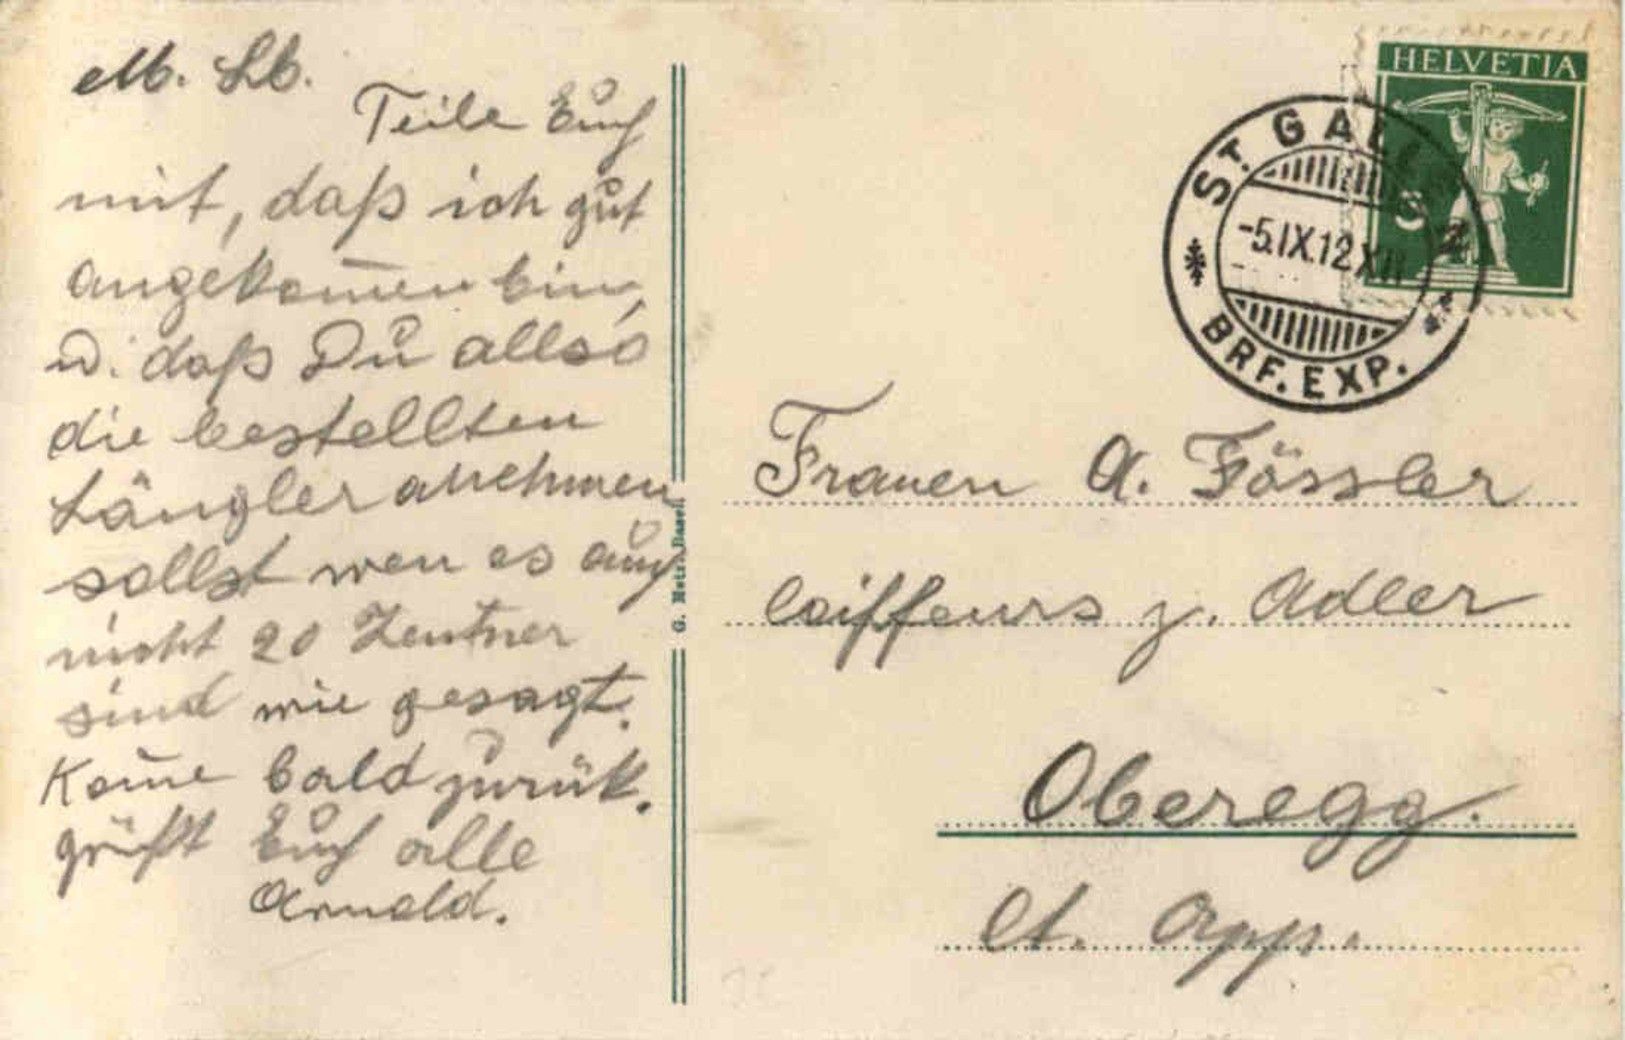 M. Lb.
Teile Euch
mit, daß ich gut
angekom̄en bin,
u. daß Du allso
die bestellten
Längler anehmen
sollst wen es auch
nicht 20 Zentner
sind wie gesagt.
Kom̄e bald zurük.
grüßt Euch alle
Arnold.
HELVETIA
5
ST. GALLEN
-5.IX.12.XII
BRF. EXP.
Frauen A. Fässler
Coiffeurs z. Adler
Oberegg.
Ct. App.